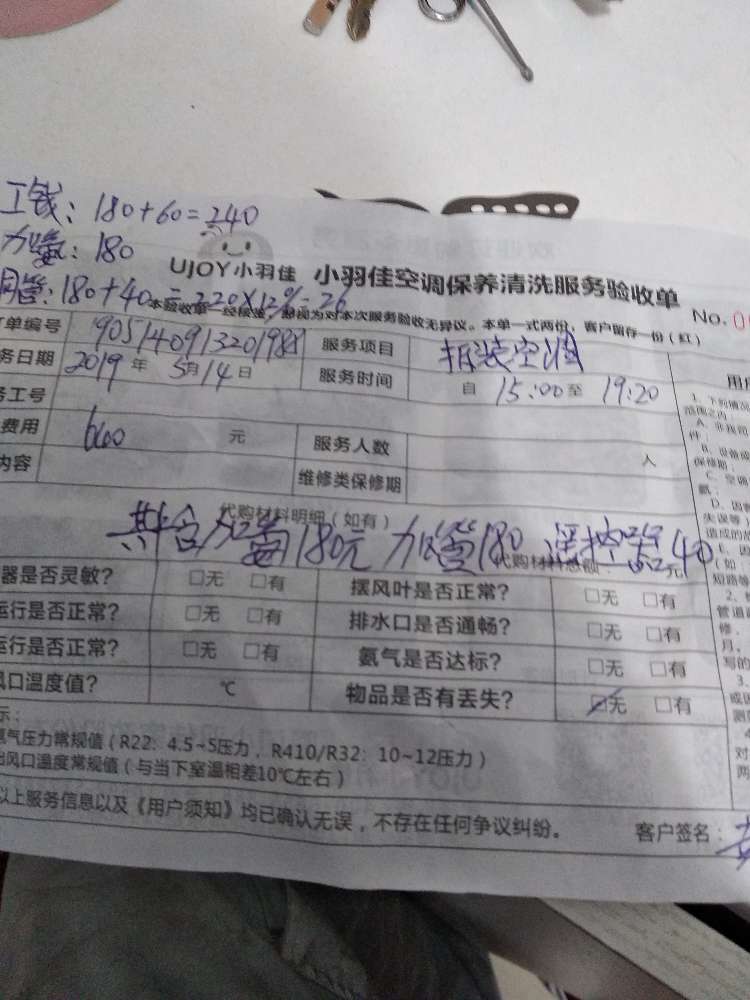 工钱：180+60=240
加氨：180
用管：180+40=220×12%=26
UJOY小羽佳 小羽佳空调保养清洗服务验收单
本验收单一经接收，即视为对本次服务验收无异议。本单一式两份，客户留存一份（红）
No. 0
单编号 905140913201988 服务项目 拆装空调
务日期 2019年5月14日 服务时间 自 15:00 至 19:20
工号
费用 640 元 服务人数 人
内容 维修类保修期
代购材料明细（如有）
其它加氨180元 加管180 遥控器40
代购材料总额： 元
器是否灵敏？ □无 □有 摆风叶是否正常？ □无 □有
运行是否正常？ □无 □有 排水口是否通畅？ □无 □有
运行是否正常？ □无 □有 氨气是否达标？ □无 □有
风口温度值？ ℃ 物品是否有丢失？ ☑无 □有
示：
氨气压力常规值（R22：4.5~5压力，R410/R32：10~12压力）
出风口温度常规值（与当下室温相差10℃左右）
以上服务信息以及《用户须知》均已确认无误，不存在任何争议纠纷。
客户签名：
用户
1、下列情况
范围之内：
A、非我司
件；
B、设备
保修期；
C、空调
氨；
失误等
造成的
（如：
短路等
2、
管道
修，
月，
写的
3、
或
测
4
对
两